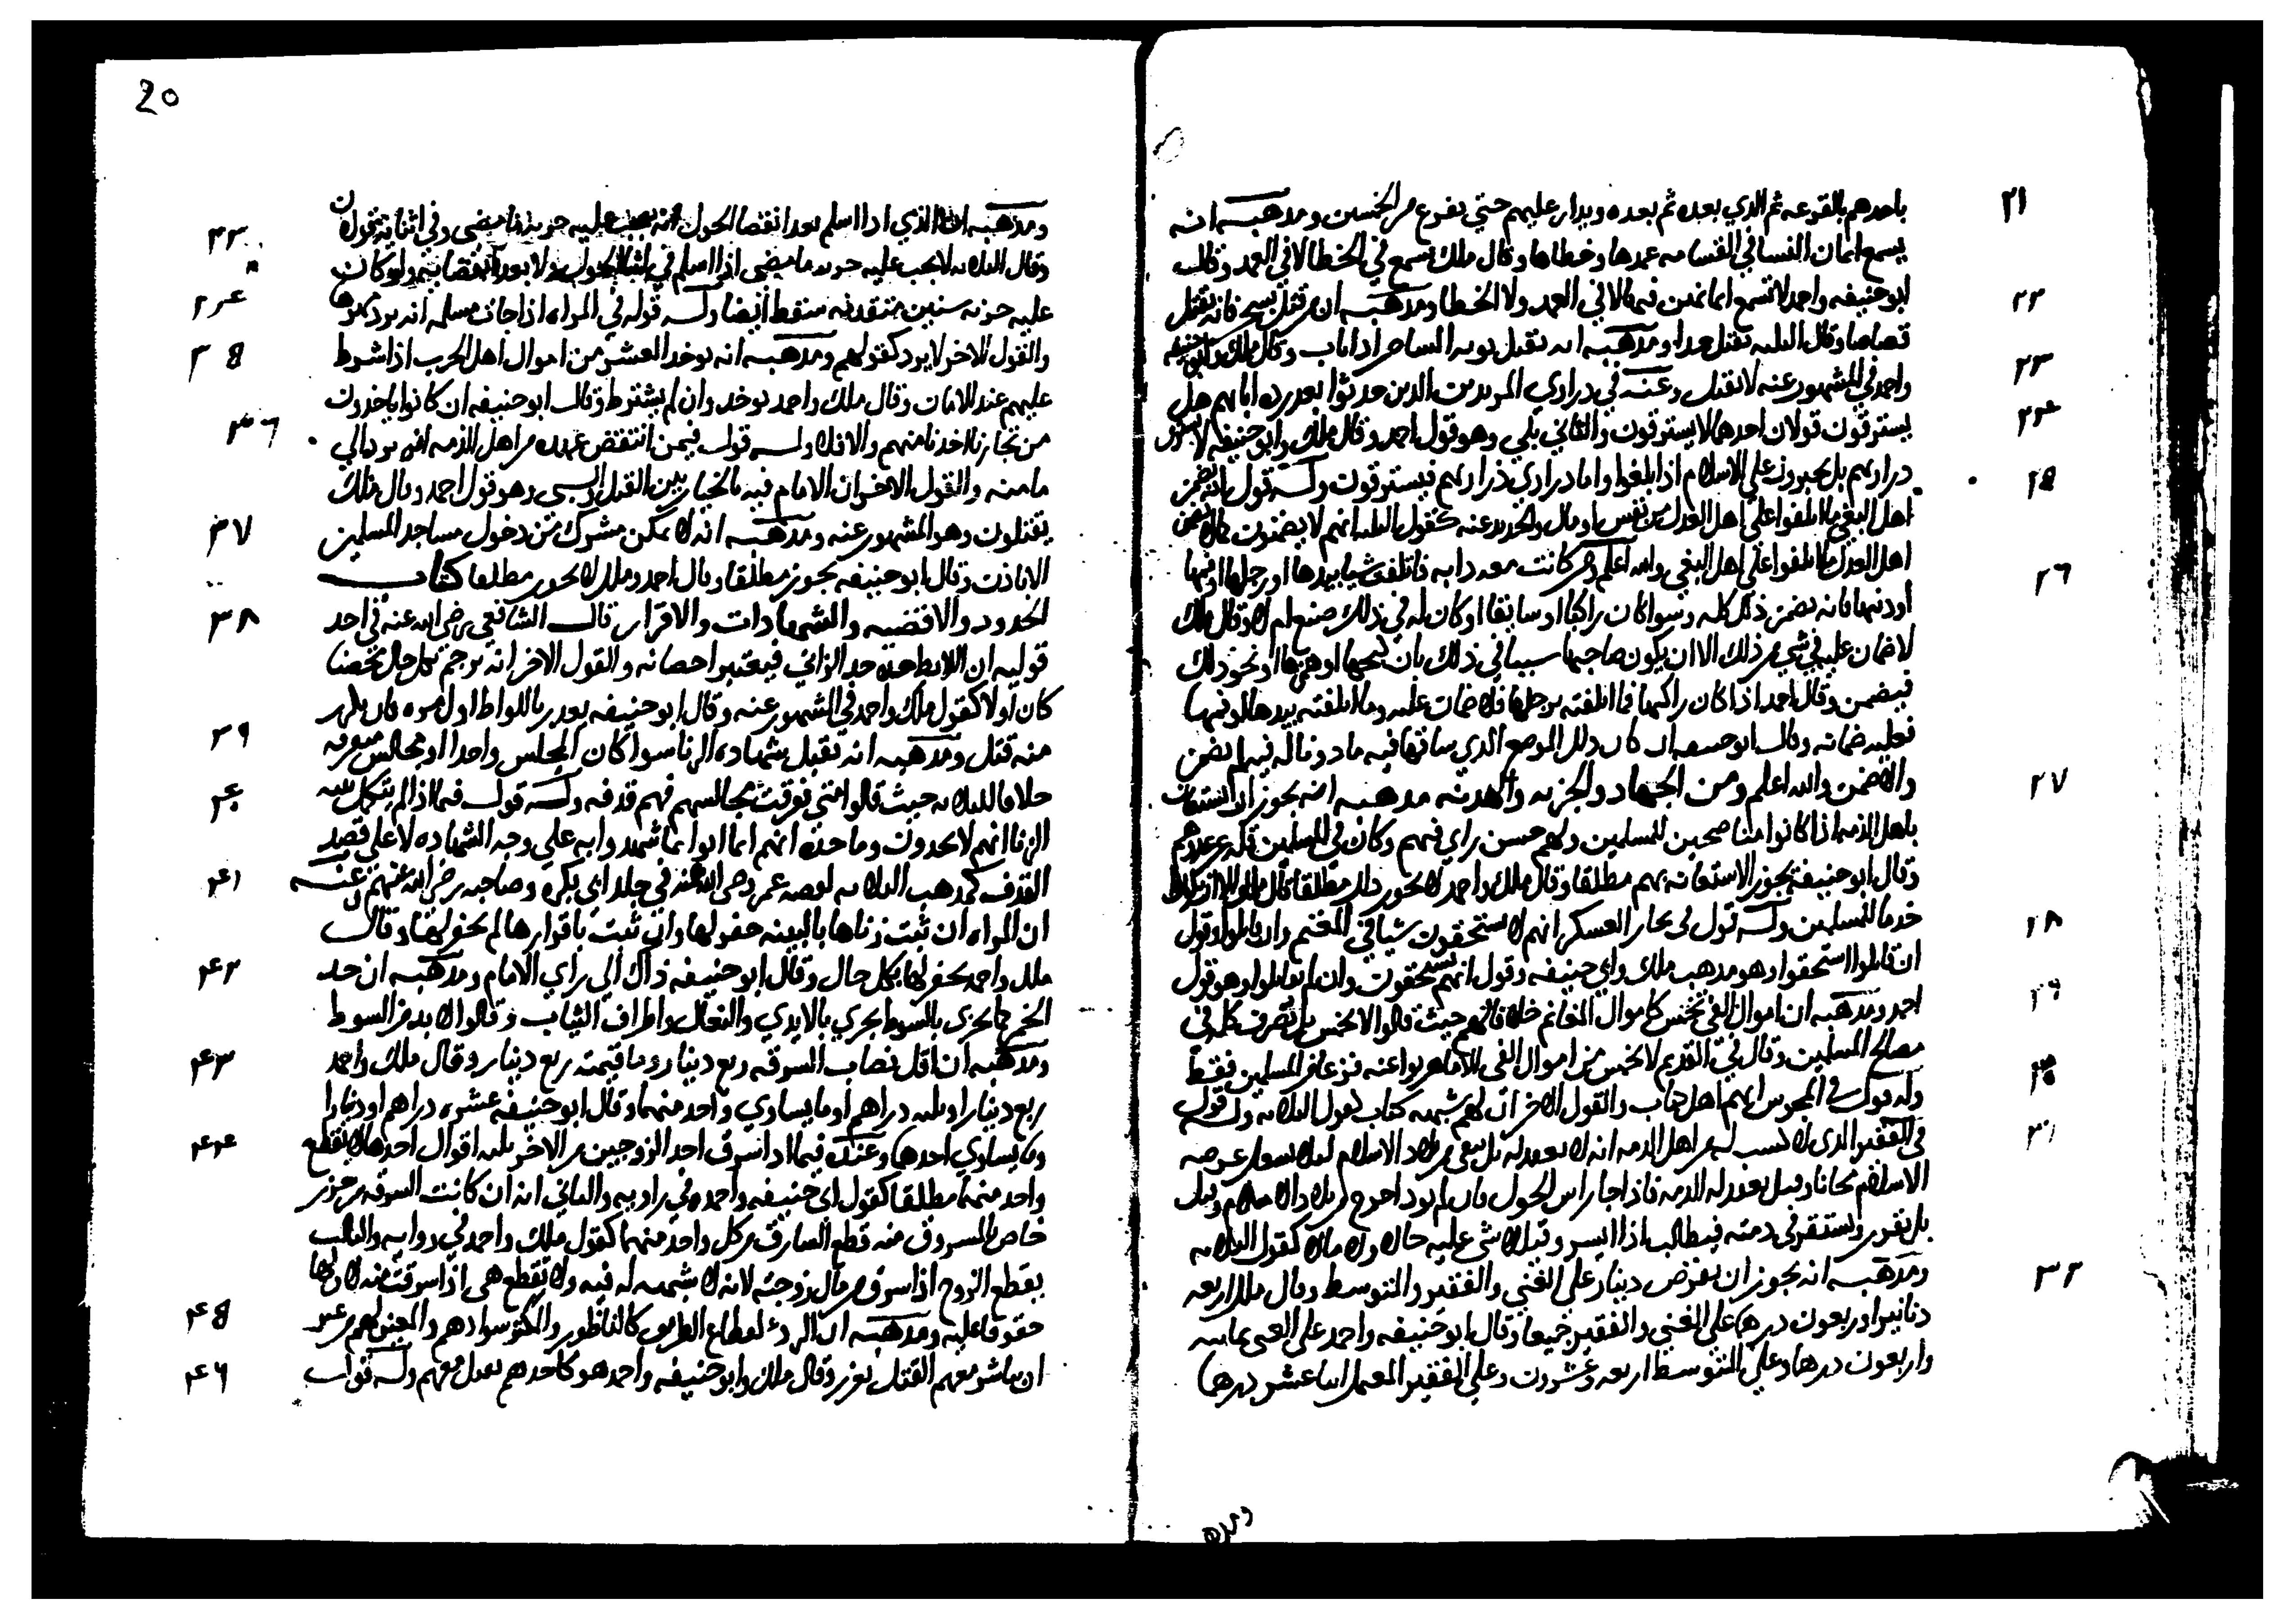 باحدهم بالقرعه ثم الذي بعده ثم بعده ويدار عليهم حتي يفرغ من الخمسين ومذهبه انه
٢١
يسمع ايمان النسا في القسامه عمدها وخطاها وقال ملك تسمع في الخطا لا في العمد وقالت
ابو حنيفه واحمد لا تسمع ايمانهن فيها لا في العمد ولا الخطا ومذهبه ان من قتل بسحر فانه يقتل
٢٢
قصاصا وقال الثلثه يقتل حدا ومذهبه انه تقبل توبه الساحر اذا تاب وقال ملك وابو حنيفه
واحمد في المشهور عنه لا تقبل وعنه في دراري المرتدين الذين حدثوا بعد رده ابائهم هل
٢٣
يسترقون قولان احدهما لا يسترقون والثاني بلي وهو قول احمد وقال ملك وابو حنيفه لا
٢٤
دراريهم بل يجبرون علي الاسلام اذا بلغوا واما دراري ذراريهم فيسترقون وله قول انه يضمن
٢٥
اهل البغي ما اتلفوا علي اهل العدل من نفس او مال والجديد عنه كقول الثلثه انهم لا يضمنون كما لا يضمن
اهل العدل ما اتلفوا علي اهل البغي والله اعلم ومن كانت معه دابه فاتلفت شيا بيدها او رجلها او فمها
٢٦
او ذنبها فانه يضمن ذلك كله وسوا كان راكبا او سايقا او كان له في ذلك صنع ام لا وقال ملك
لا ضمان عليه في شي من ذلك الا ان يكون صاحبها سببا في ذلك بان كبحها او همزها او نحو ذلك
فيضمن وقال احمد اذا كان راكبها فما اتلفته برجلها فلا ضمان عليه وما اتلفته بيدها او فمها
فعليه ضمانه وقال ابو حنيفه ان كان ذلك الموضع الذي ساقها فيه ماذونا له فيه لم يضمن
والا ضمن والله اعلم ومن الجهاد والجزيه والهدنه مذهبه انه يجوز ان يستعان
٢٧
باهل الذمه اذا كانوا مناصحين للمسلمين ولهم حسن راي فيهم وكان في المسلمين قله
وقال ابو حنيفه يجوز الاستعانه بهم مطلقا وقال ملك واحمد لا يجوز ذلك مطلقا قال ملك الا ان يكونوا
خدما للمسلمين وله قول في تجار العسكر انهم لا يستحقون شيا في المغنم وان قاتلوا وقول
٢٨
ان قاتلوا استحقوا وهو مذهب ملك وابي حنيفه وقول انهم يستحقون وان لم يقاتلوا وهو قول
احمد ومذهبه ان اموال الفي تخمس كاموال المغانم خلافا لهم حيث قالوا لا تخمس بل تصرف كلها في
٢٩
مصالح المسلمين وقال في القديم لا تخمس من اموال الفي الا ما هربوا عنه فزعا من المسلمين فقط
وله قول في المجوس انهم اهل كتاب والقول الاخر ان لهم شبهه كتاب كقول الثلاثه وله قول
٣٠
في الفقير الذي لا كسب له من اهل الذمه انه لا يعقد له بل ينفي من بلاد الاسلام
٣١
الاسلام مجانا وقيل يعقد له الذمه فاذا جا راس الحول فان لم يود اخرج من بلاد الاسلام وقيل
بل يقر وتستقر في ذمته فيطالب اذا ايسر وقيل لا شي عليه حالا ولا مالا كقول الثلاثه
ومذهبه انه يجوز ان يفرض دينار علي الغني والفقير والمتوسط وقال ملك اربعه
٣٢
دنانير او اربعون درهما علي الغني والفقير جميعا وقال ابو حنيفه واحمد علي الغني ثمانيه
واربعون درهما وعلي المتوسط اربعه وعشرون وعلي الفقير المعتمل اثنا عشر درهما
20
ومذهبه ان الذي اذا اسلم بعد انقضا الحول انه يجب عليه جزيه ما مضي وفي اثنايه قولان
٣٣
وقال الثلاثه لا يجب عليه جزيه ما مضي اذا اسلم في اثنا الحول ولا بعد انقضايه ولو كان
عليه جزيه سنين متقدمه سقط ايضا وله قول في المراه اذا جات مسلمه انه يرد مهرها
٣٤
والقول الاخر لا يرد كقولهم ومذهبه انه يوخذ العشر من اموال اهل الحرب اذا شرط
٣٥
عليهم عند الامان وقال ملك واحمد يوخذ وان لم يشترط وقال ابو حنيفه ان كانوا ياخذون
من تجارنا اخذنا منهم والا فلا وله قول فيمن انتقض عهده من اهل الذمه انه يرد الي
٣٦
مامنه والقول الاخر ان الامام فيه بالخيار بين القتل والسبي وهو قول احمد وقال ملك
يقتلون وهو المشهور عنه ومذهبه انه لا يمكن مشرك من دخول مساجد المسلمين
٣٧
الا باذن وقال ابو حنيفه يجوز مطلقا وقال احمد وملك لا يجوز مطلقا كتاب
الحدود والاقضيه والشهادات والاقرار قال الشافعي رضي الله عنه في احد
٣٨
قوليه ان اللايط حده حد الزاني فيعتبر احصانه والقول الاخر انه يرجم بكل حال محصنا
كان او لا كقول ملك واحمد في المشهور عنه وقال ابو حنيفه يعزر باللواط اول مره فان تكرر
منه قتل ومذهبه انه تقبل شهاده الزنا سوا كان المجلس واحدا او مجالس متفرقه
٣٩
خلافا للثلاثه حيث قالوا متي تفرقت مجالسهم فهم قذفه وله قول فيما اذا لم يتكمل بينه
٤٠
الزنا انهم لا يحدون وماخذه انهم انما اتوا بما شهدوا به علي وجه الشهاده لا علي قصد
القذف كمذهب الثلاثه لقصه عمر رضي الله عنه في جلد ابي بكره وصاحبه رضي الله عنهم وعنه
٤١
ان المراه ان ثبت زناها بالبينه حفر لها وان ثبت باقرارها لم يحفر لها وقال
ملك واحمد يحفر لها بكل حال وقال ابو حنيفه ذلك الي راي الامام ومذهبه ان حد
٤٢
الخمر كما يجزي بالسوط يجزي بالايدي والنعال واطراف الثياب وقالوا لا بد من السوط
ومذهبه ان اقل نصاب السرقه ربع دينار وما قيمته ربع دينار وقال ملك واحمد
٤٣
ربع دينار او ثلثه دراهم او ما يساوي واحد منهما وقال ابو حنيفه عشره دراهم او دينارا
وما يساوي احدهما وعنده فيما اذا سرق احد الزوجين من الاخر ثلثه اقوال احدها لا يقطع
٤٤
واحد منهما مطلقا كقول ابي حنيفه واحمد في روايه والثاني انه ان كانت السرقه من حرز
خاص للمسروق منه قطع السارق من كل واحد منهما كقول ملك واحمد في روايه والثالث
يقطع الزوج اذا سرق من مال زوجته لانه لا شبهه له فيه ولا تقطع هي اذا سرقت منه لان لها
حقوقا عليه ومذهبه ان الردء لقطاع الطريق كالناظور والمكثر سوادهم والمعين لهم من غير
٤٥
ان يباشر معهم القتل يعزر وقال ملك وابو حنيفه واحمد هو كاحدهم يقتل معهم وله قولان
٤٦